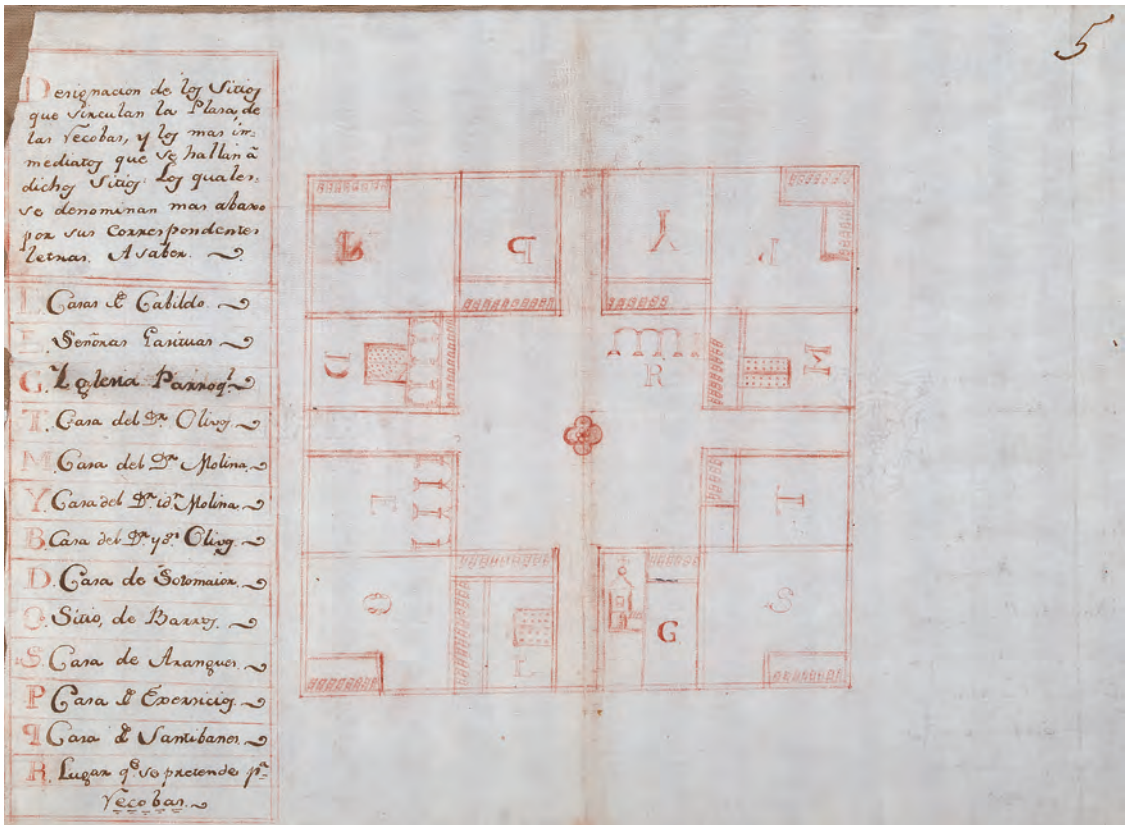 5
Designacion de los Sitios
que Sirculan la Plasa, de
las Vecobas, y los mas in=
mediatos que se hallan â
dichos Sitios: Los quales,
se denominan mas abaxo
por sus correspondentes
letras. A saber.
L. Casas de Cabildo.
E. Señoras
G. Yglesia Parroql.
T. Casa del Dr. Olivos
M. Casa del Dr. Molina
Y. Casa del Dr. idn. Molina
B. Casa del Dr. ysn. Olivos
D. Casa de Sotomaior
O. Sitio, de Barros.
S. Casa de Arangues.
P Casa de Exersicios.
q Casa de Santibanes.
R. Lugar qe. se pretende pa.
Vecobas.
B
P
Y
P
D
R
M
E
T
O
L
G
S